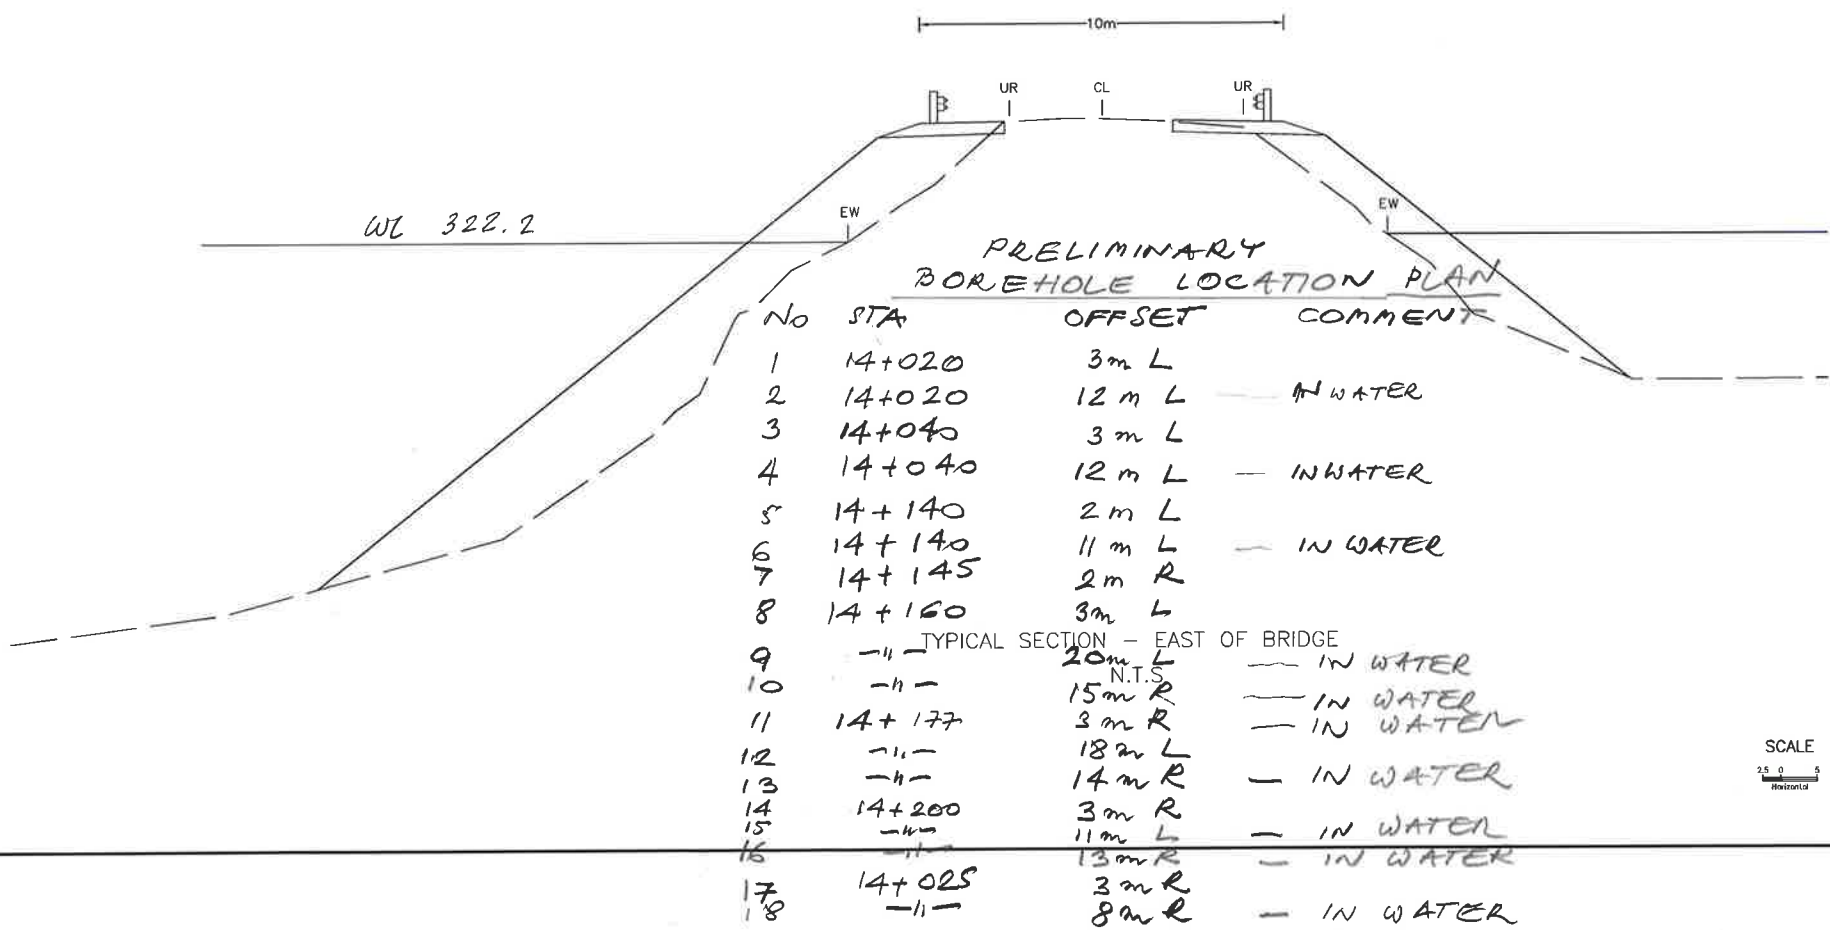 10m
UR CL UR
EW EW
WL 322.2
PRELIMINARY
BOREHOLE LOCATION PLAN
No STA OFFSET COMMENT
1 14+020 3m L
2 14+020 12 m L — IN WATER
3 14+040 3 m L
4 14+040 12 m L — IN WATER
5 14+140 2 m L
6 14+140 11 m L — IN WATER
7 14+145 2m R
8 14+160 3m L
TYPICAL SECTION – EAST OF BRIDGE
9 —"— 20m L — IN WATER
N.T.S
10 —"— 15m R — IN WATER
11 14+177 3m R — IN WATER
12 —"— 18m L
13 —"— 14m R — IN WATER
14 14+200 3m R
15 —"— 11m L — IN WATER
16 —"— 13m R — IN WATER
17 14+025 3m R
18 —"— 8m R — IN WATER
SCALE
2.5 0 5
Horizontal